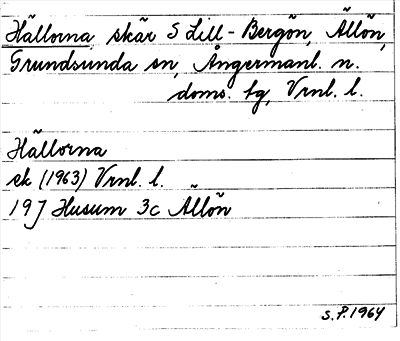 Hällorna, skär S Lill-Bergön, Ällön,
Grundsunda sn, Ångermanl. n.
doms. tg, Vrnl. l.
Hällorna
ek (1963) Vrnl. l.
19J Husum 3c Ällön
S.P. 1964